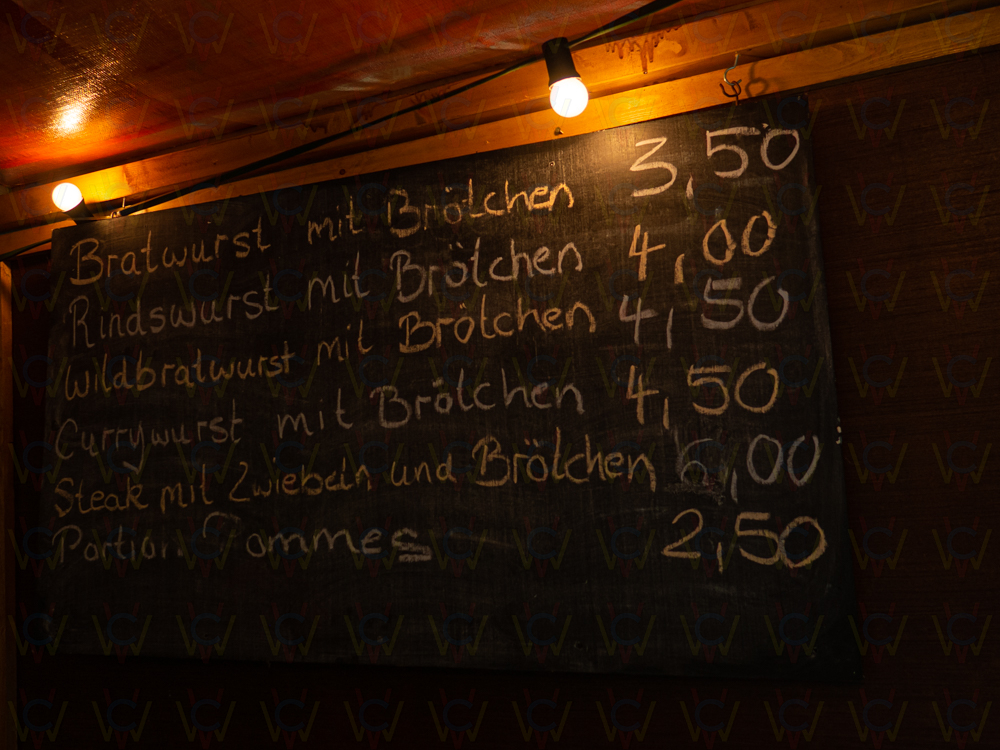 Bratwurst mit Brötchen 3,50
Rindswurst mit Brötchen 4,00
Wildbratwurst mit Brötchen 4,50
Currywurst mit Brötchen 4,50
Steak mit Zwiebeln und Brötchen 6,00
Portion Pommes 2,50